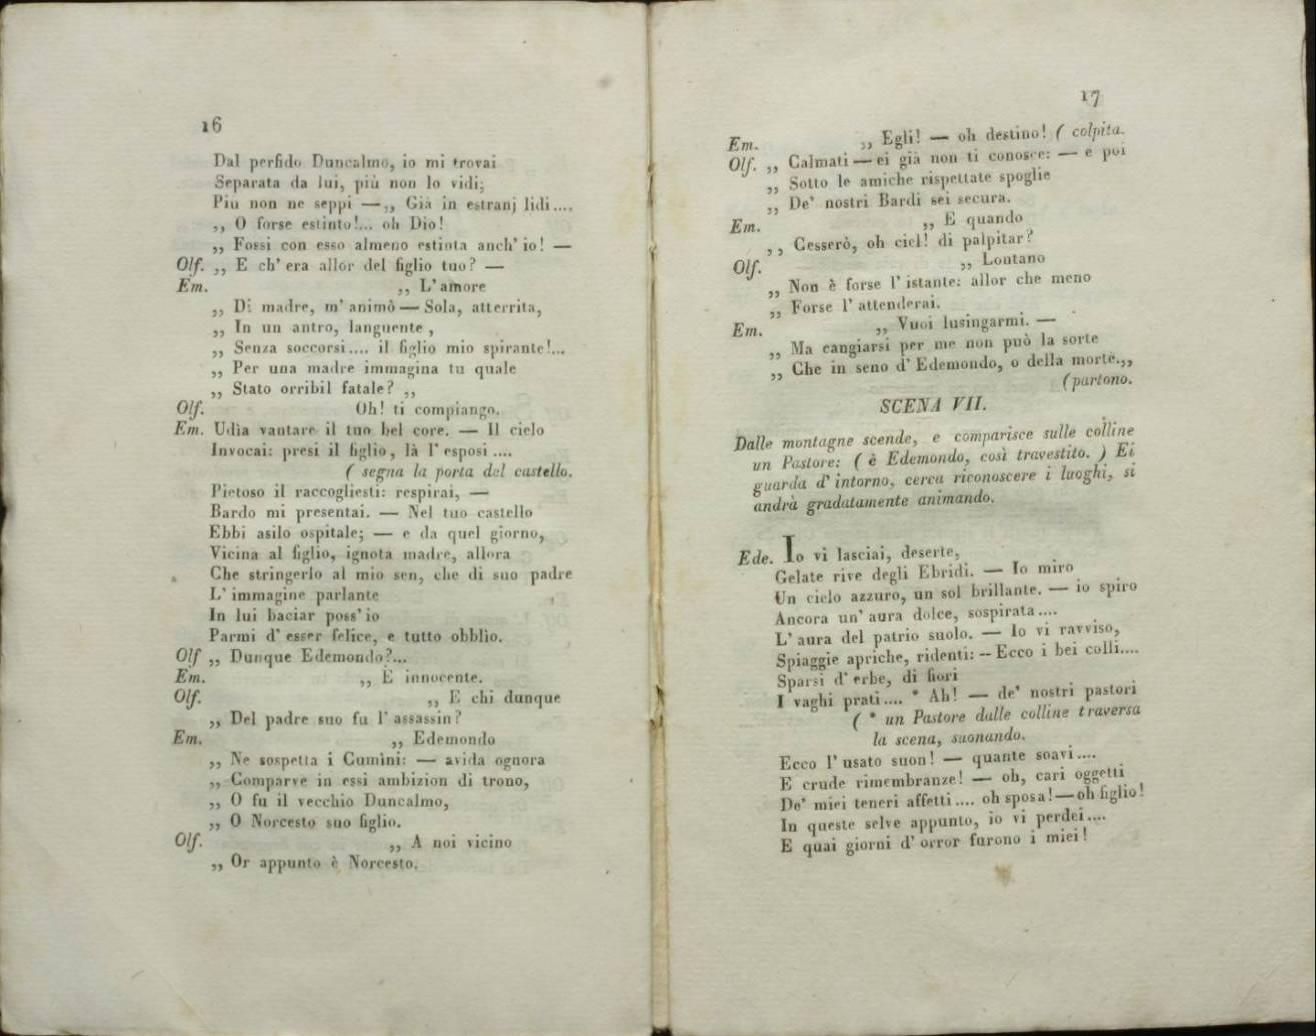 16
Dal perfido Duncalmo, io mi trovai
Separata da lui, più non lo vidi;
Più non ne seppi — „ Già in estranj lidi....
„ O forse estinto!... oh Dio!
„ Fossi con esso almeno estinta anch' io! —
Olf. „ E ch' era allor del figlio tuo? —
Em. „ L' amore
„ Di madre, m' animò — Sola, atterrita,
„ In un antro, languente ,
„ Senza soccorsi.... il figlio mio spirante!...
„ Per una madre immagina tu quale
„ Stato orribil fatale? „
Olf. Oh! ti compiango.
Em. Udìa vantare il tuo bel core. — Il cielo
Invocai: presi il figlio, là l' esposi ....
( segna la porta del castello.
Pietoso il raccogliesti: respirai, —
Bardo mi presentai. — Nel tuo castello
Ebbi asilo ospitale; — e da quel giorno,
Vicina al figlio, ignota madre, allora
Che stringerlo al mio sen, che di suo padre
L' immagine parlante
In lui baciar poss' io
Parmi d' esser felice, e tutto obblìo.
Olf „ Dunque Edemondo?...
Em. „ È innocente.
Olf. „ E chi dunque
„ Del padre suo fu l' assassin?
Em. „ Edemondo
„ Ne sospetta i Cumìni: — avida ognora
„ Comparve in essi ambizion di trono,
„ O fu il vecchio Duncalmo,
„ O Norcesto suo figlio.
Olf. „ A noi vicino
„ Or appunto è Norcesto.
17
Em. „ Egli! — oh destino! ( colpita.
Olf. „ Calmati — ei già non ti conosce: — e poi
„ Sotto le amiche rispettate spoglie
„ De' nostri Bardi sei secura.
Em. „ E quando
„ Cesserò, oh ciel! di palpitar?
Olf. „ Lontano
„ Non è forse l' istante: allor che meno
„ Forse l' attenderai.
Em. „ Vuoi lusingarmi. —
„ Ma cangiarsi per me non può la sorte
„ Che in seno d' Edemondo, o della morte.„
(partono.
SCENA VII.
Dalle montagne scende, e comparisce sulle colline
un Pastore: ( è Edemondo, così travestito. ) Ei
guarda d' intorno, cerca riconoscere i luoghi, si
andrà gradatamente animando.
Ede. Io vi lasciai, deserte,
Gelate rive degli Ebridi. — Io miro
Un cielo azzuro, un sol brillante. — io spiro
Ancora un' aura dolce, sospirata....
L' aura del patrio suolo. — Io vi ravviso,
Spiaggie apriche, ridenti: -- Ecco i bei colli....
Sparsi d' erbe, di fiori
I vaghi prati.... * Ah! — de' nostri pastori
( * un Pastore dalle colline traversa
la scena, suonando.
Ecco l' usato suon! — quante soavi....
E crude rimembranze! — oh, cari oggetti
De' miei teneri affetti.... oh sposa! — oh figlio!
In queste selve appunto, io vi perdei....
E quai giorni d' orror furono i miei!